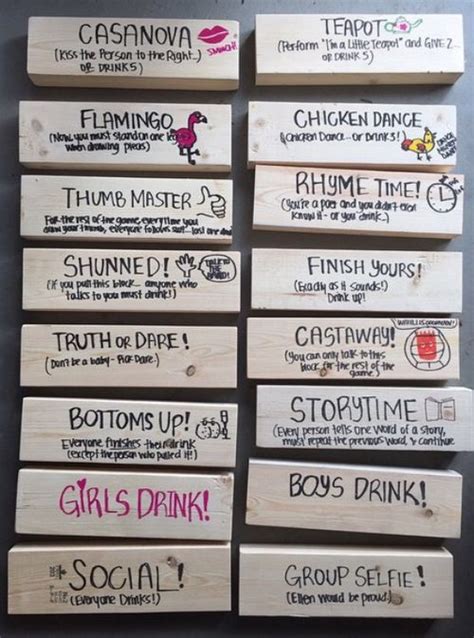 CASANOVA
(Kiss the Person to the Right...)
OR DRINK 5)
SMOOCH!
TEAPOT
(Perform "I'm a Little Teapot" and GIVE 2...
OR DRINK 5)
FLAMINGO
(Now, you must stand on one leg
when drawing pieces)
CHICKEN DANCE
(Chicken Dance... or Drink 3!)
THUMB MASTER
For the rest of the game, everytime you
your thumb, everyone follows suit... last one
RHYME TIME!
(You're a poet and you didn't even
know it - or you drink...)
SHUNNED!
(If you pull this block... anyone who
talks to you must drink!)
TALK TO
THE
HAND!
FINISH YOURS!
(Exactly as it sounds!)
Drink up!
TRUTH OR DARE!
(Don't be a baby - Pick Dare.)
CASTAWAY!
(You can only talk to this
block for the rest of the
game.)
BOTTOMS UP!
Everyone finishes their drink
(except the person who pulled it!)
STORYTIME
(Every person tells one word of a story,
must repeat the previous word, & continue
GIRLS DRINK!
BOYS DRINK!
SOCIAL!
(Everyone Drinks!)
GROUP SELFIE!
(Ellen would be proud.)